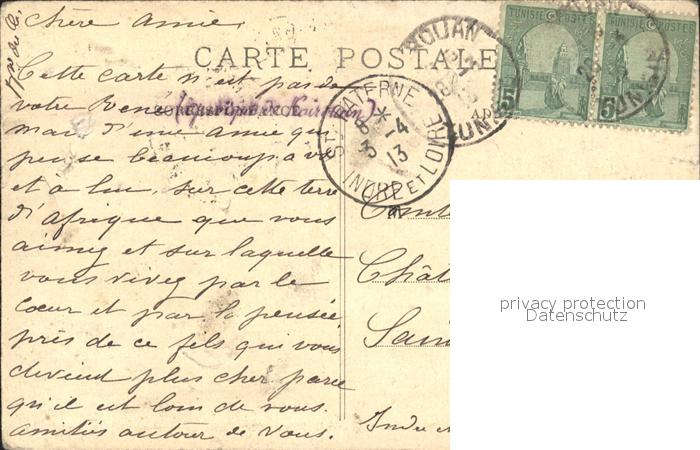 Chère Amie,
CARTE POSTALE
Cette carte n'est pas de
votre René
mais d'une amie qui
pense beaucoup à v
et a lui, sur cette terre
d'afrique que vous
aimez et sur laquelle
vous vivez par le
cœur et par la pensée
près de ce fils qui vous
devient plus cher parce
qu'il est loin de vous.
amitiés autour de vous.
TUNISIE POSTES
5
TUNISIE POSTES
5
ROUAN
ST PATERNE
8 *
3 -4
13
INDRE ET LOIRE
Comte
Chât
Sain
Indre e
privacy protection
Datenschutz